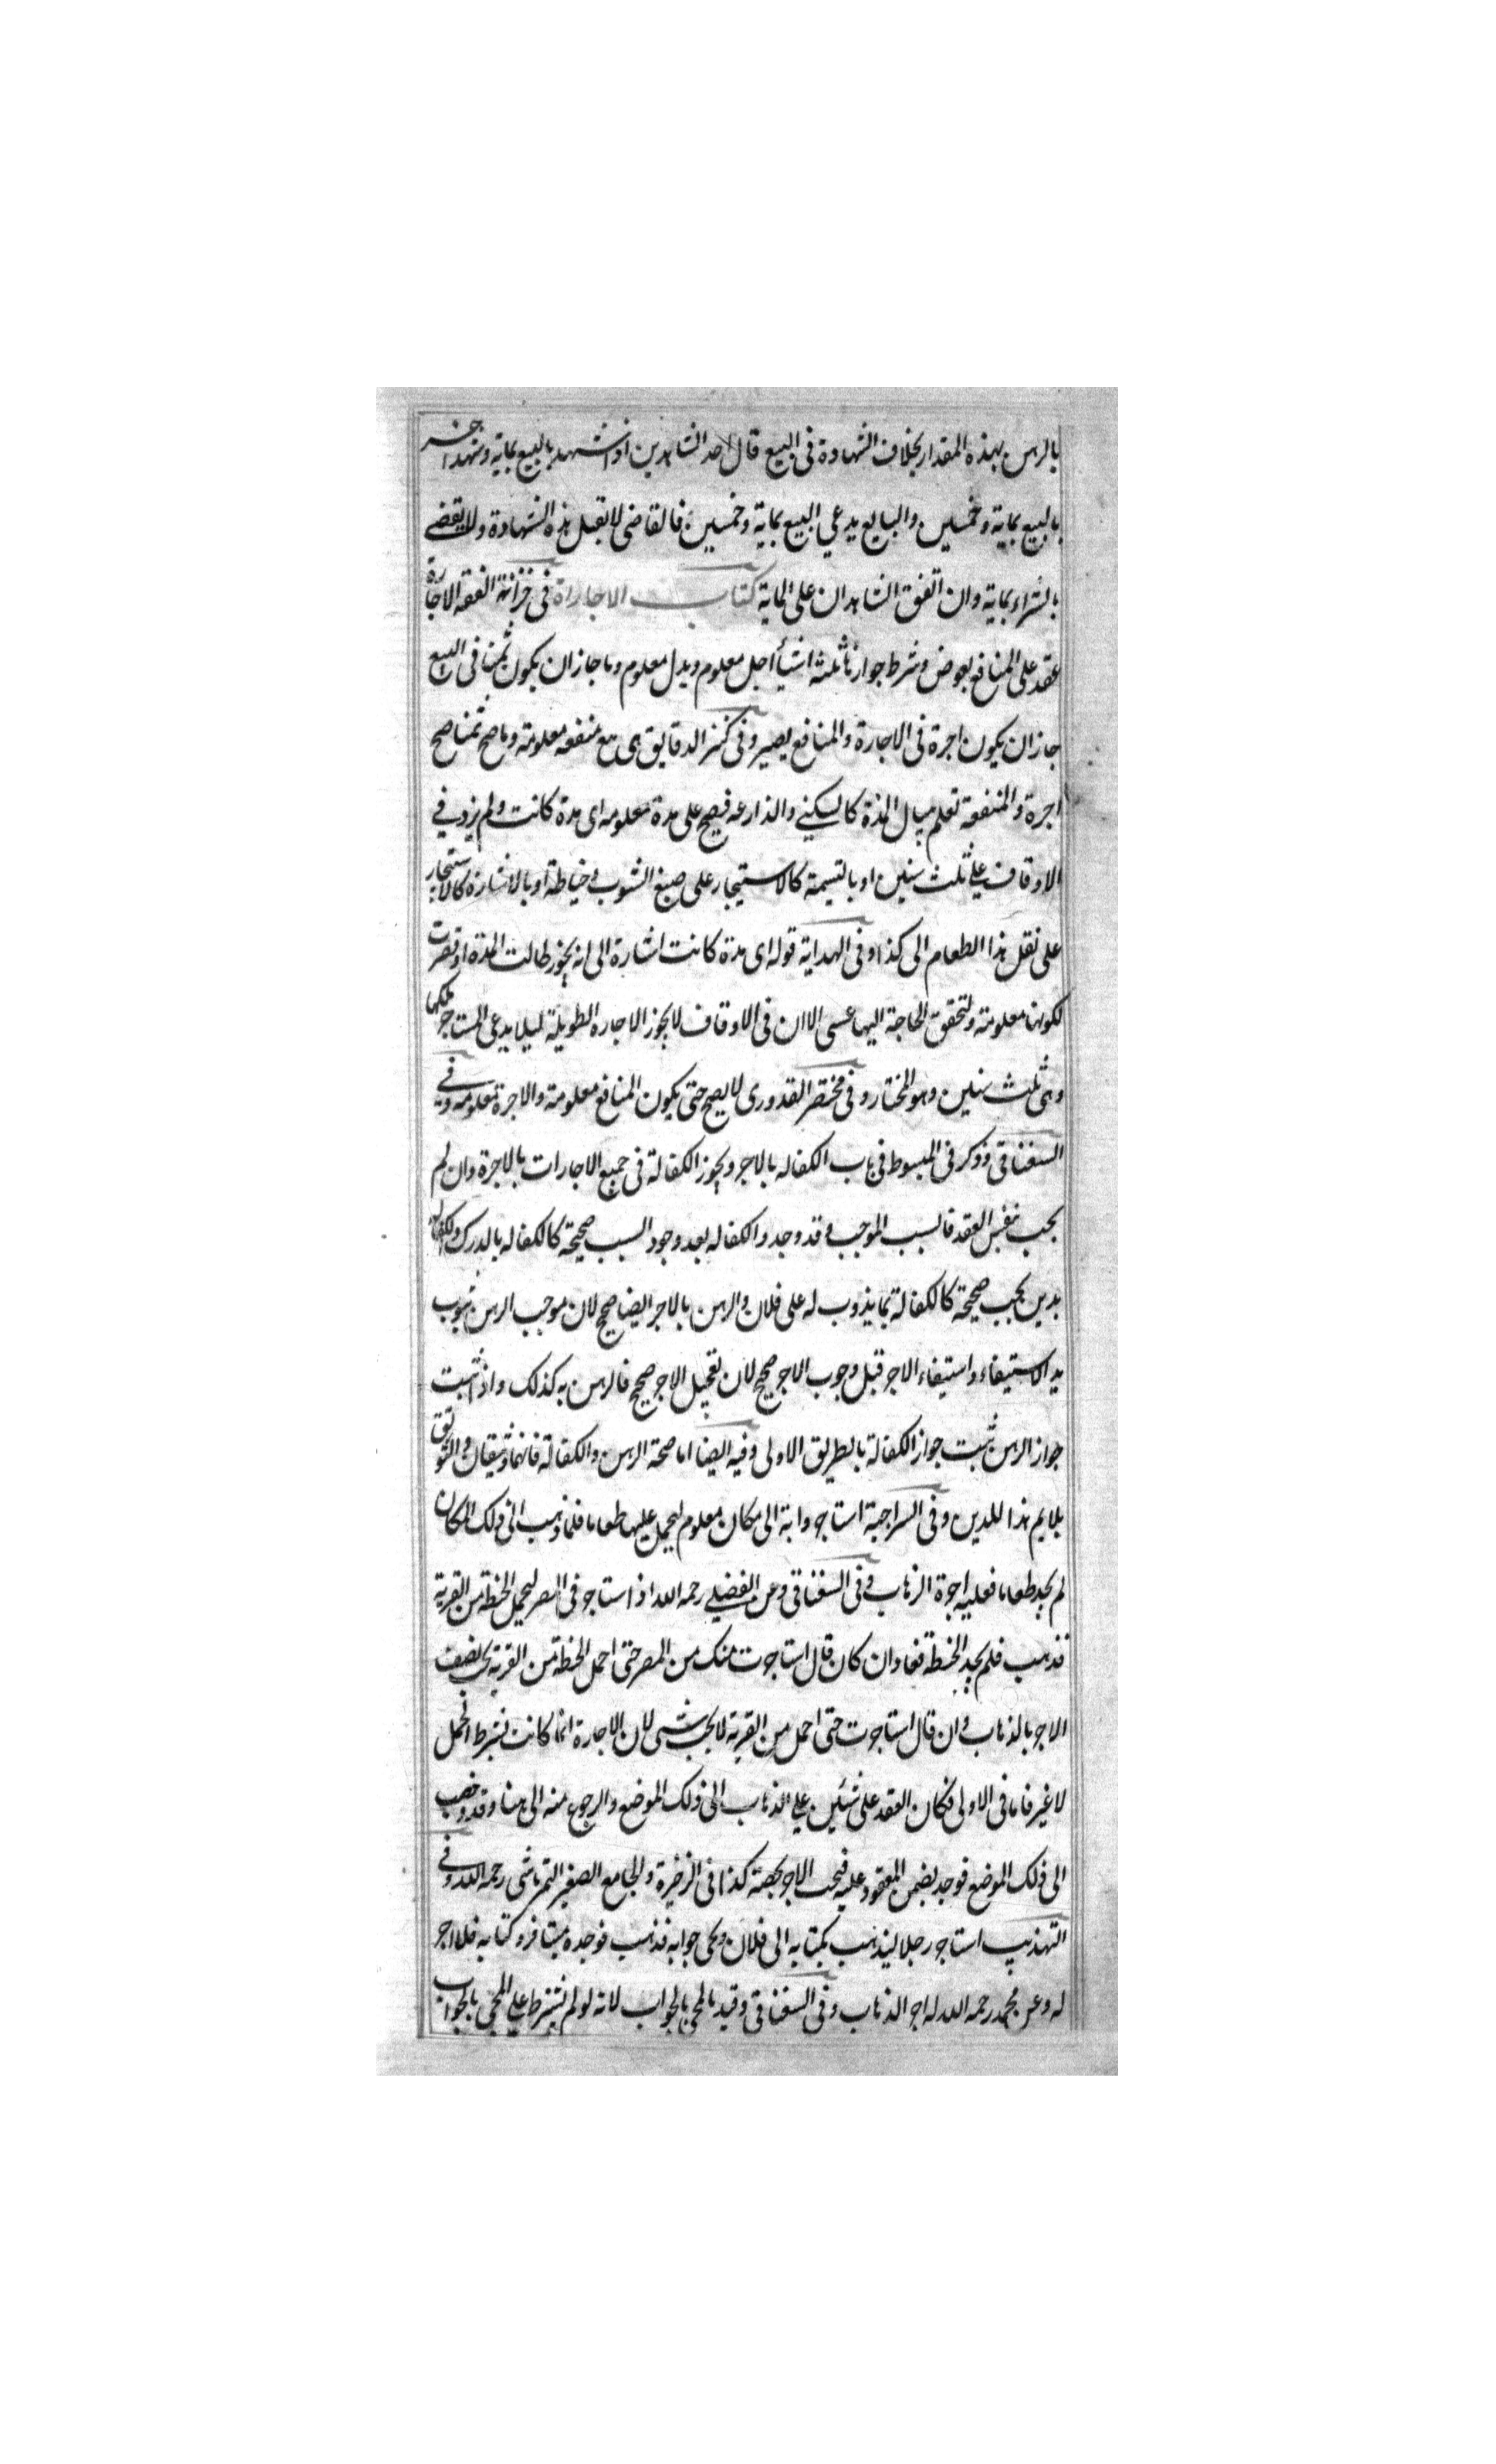 بالرهن بهذه المقدار بخلاف الشهادة فى البيع قال احد الشاهدين اذا شهد بالبيع بماية وشهد اخر
بالبيع بماية وخمسين والبايع يدعي البيع بماية وخمسين فالقاضى لا تقبل هذه الشهادة ولا يقضے
بالشراء بماية وان اتفق الشاهدان على الماية كتاب الاجاراة فى خزانة الفقه الاجارة
عقد على المنافع بعوض وشرط جوازها ثلثة اشيأ اجل معلوم وبدل معلوم وما جاز ان يكون ثمنا فى البيع
جاز ان يكون اجرة فى الاجارة والمنافع يصير وفى كنز الدقايق هى بيع منفعه معلومة وما صح ثمنا صح
اجرة والمنفعة تعلم ببيان المدة كالسكنے والذارعه فيصح على مدة معلومه اى مدة كانت ولم يزد في
الاوقاف علے ثلث سنين او بالتسمية كالاستيجار على صبغ الثوب وخياطة او بالاشارة كالاستيجار
على نقل هذا الطعام الى كذا وفى الهداية قوله اى مدة كانت اشارة الى انه يجوز طالت المدة او قصرت
لكونها معلومة ولتحقق الحاجة اليها عسى الا ان فى الاوقاف لا يجوز الاجاره الطويلة ليلا يدعى المستاجر ملكها
وهى ثلث سنين وهو المختار وفى مختصر القدورى لا يصح حتى يكون المنافع معلومة والاجرة معلومه وفے
السغناقى وذكر فى المبسوط فى باب الكفاله بالاجر ويجوز الكفالة فى جميع الاجارات بالاجرة وان لم
يجب بنفس العقد فالسبب الموجب قد وجد والكفاله بعد وجود السبب صحيحة كالكفاله بالدرك والكفاله
بدين يجب صحيحة كالكفالة بما يذوب له على فلان والرهن بالاجر ايضا صحيح لان موجب الرهن ثبوت
يد الاستيفاء واستيفاء الاجر قبل وجوب الاجر صحيح لان تعجيل الاجر صحيح فالرهن به كذلك واذا ثبت
جواز الرهن ثبت جواز الكفالة بالطريق الاولى وفيه ايضا اما صحة الرهن والكفالة فانهما وثيقان والتوثق
يلايم هذا للدين وفى السراجية استاجر دابة الى مكان معلوم ليحمل عليها طعاما فلما ذهب الى ذلك المكان
لم يجد طعاما فعليه اجرة الذهاب وفى السغناقى وعن الفضلے رحمه الله اذا استاجر فى المصر ليحمل الحنطة من القرية
فذهب فلم يجد الحنطة فعاد ان كان قال استاجرت منك من المصر حتى احمل الحنطة من القرية يجب نصف
الاجر بالذهاب وان قال استاجرت حتى احمل من القرية لا يجب شى لان الاجارة انما كانت بشرط الحمل
لا غير فاما فى الاولى فكان العقد على شئين علے الذهاب الى ذلك الموضع والرجوع منه الى هنا وقد ذهب
الى ذلك الموضع فوجد بضمن المعقود عليه فيجب الاجر بحصة كذا فى الذخيرة والجامع الصغير التمرتاشى رحمه الله وفے
التهذيب استاجر رجلا ليذهب بكتابه الى فلان ويجى جوابه فذهب فوجده مسافر وكتابه فلا اجر
له وعن محمد رحمه الله له اجر الذهاب وفى السغناقى وقيد بالمجى بالجواب لانه لو لم يشترط علے المجى بالجواب